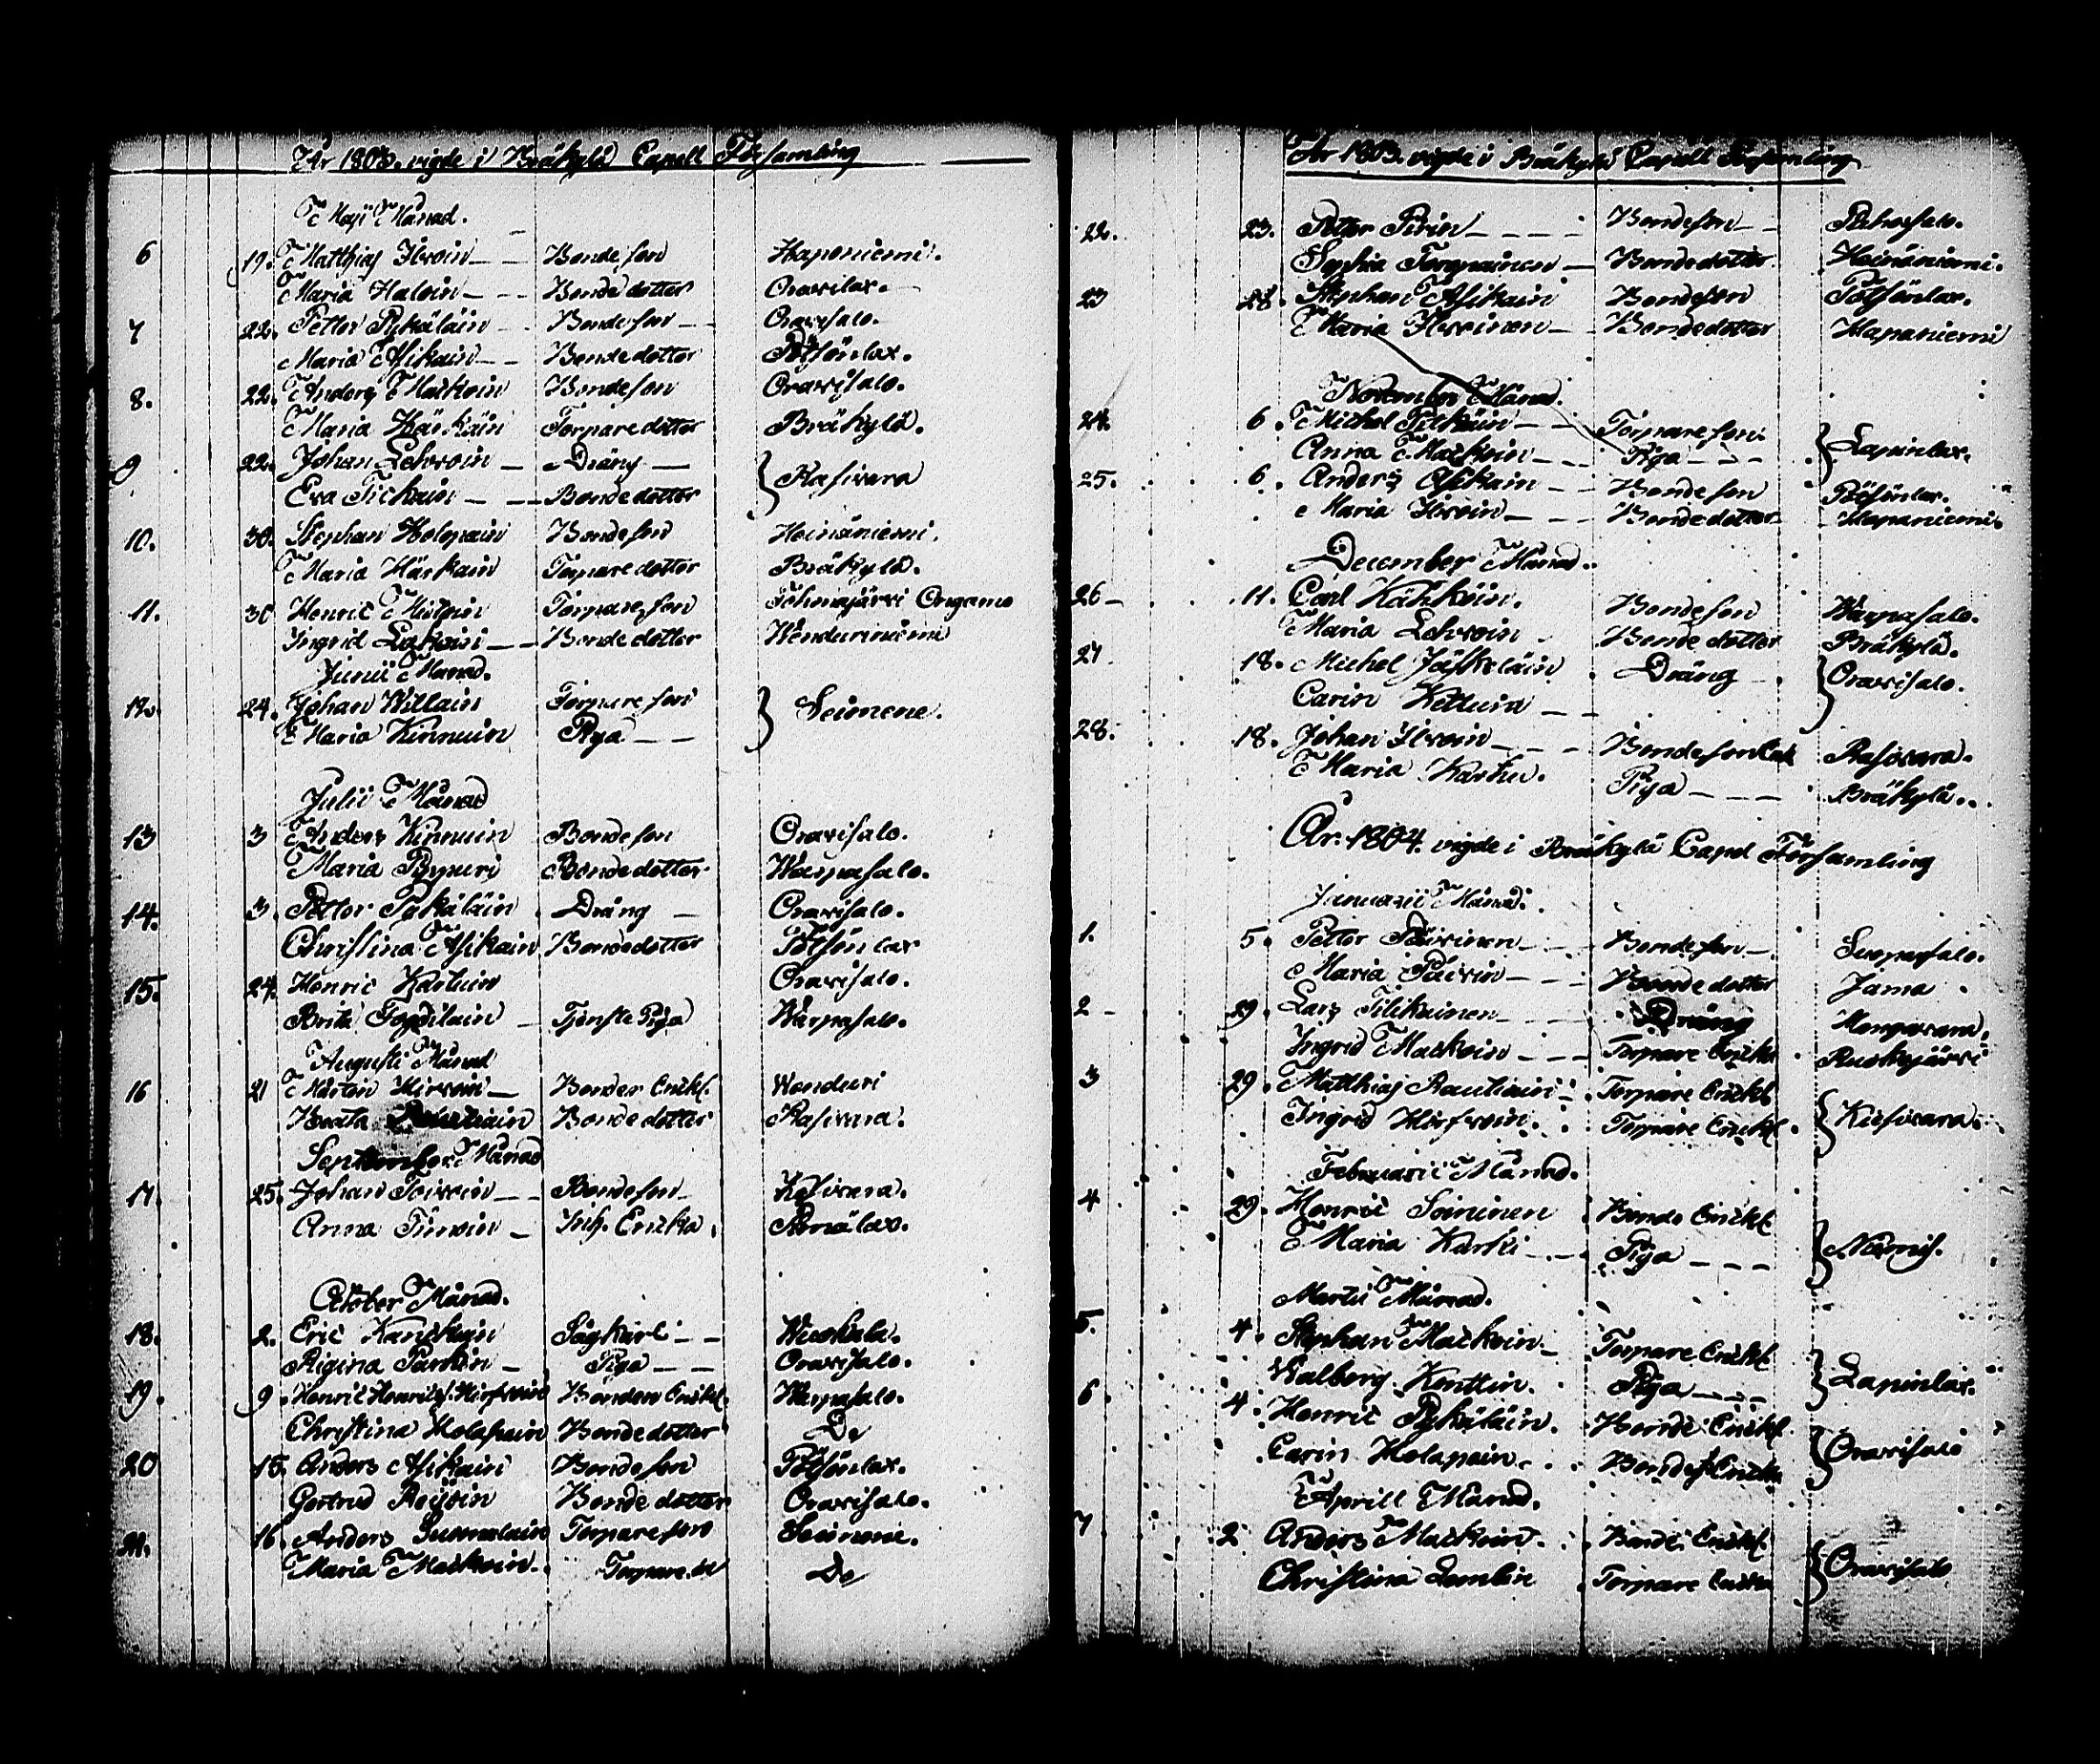 År 1803. vigde i Bräkylä Capell Församling
Maji Månad.
6 19. Matthias Ilvoin Bondeson Haponiemi.
Maria Haloin Bondedotter Oravilax.
7 22. Petter Pykäläin Bondeson Oravisalo.
Maria Asikain Bondedotter Pötsönlax.
8. 22. Anders Matkoin Bondeson Oravisalo.
Maria Härkäin Torparedotter Bräkylä.
9 22. Johan Lehvoin Dräng Rasivara
Eva Tickain Bondedotter
10. 30. Stephan Holopain Bondeson Heinäniemi.
Maria Härkäin Torparedotter Bräkylä.
11. 30 Henric Torpareson Tohmajärvi Ongamo
Ingrid Bondedotter
Junii Månad.
12. 24. Johan Willain Torpareson Seimene.
Maria Kinnuin Piga
Julii Månad
13 3 Anders Kinnuin Bondeson Oravisalo.
Maria Pypuri Bondedotter Warpasalo.
14. 3. Petter Pykäläin Dräng Oravisalo.
Christina Asikain Bondedotter Pötsönlax
15. 24. Henric Oravisalo.
Brita Toppilain Tjenste Piga Warpasalo.
Augusti Månad
16 21 Mårten Hirvoin Bonden Enckl. Wenduri
Beata Bondedotter Rasivara.
September Månad
17. 25. Johan Toivoin Bondeson Rasivara.
Anna Inh. Enckia
October Månad.
18. 2. Eric Sågkarl
Rigina Parkin Piga Oravisalo.
19. 9. Henric Henrics. Hirfvoin Bonden Enckl. Warpasalo.
Christina Holapain Bondedotter Do
20 15. Anders Asikain Bondeson Pötsönlax.
Gertrud Roivoin Bondedotter Oravisalo.
21. 16. Anders Suomalain Torpareson Seimene.
Maria Matkoin. Torpare do Do
År 1803. vigde i Bräkylä Capell Församling
22. 23. Petter Pirin Bondeson
Sophia Torvpainen Bondedotter Heinäniemi.
23 28. Stephan Asikain Bondeson Pötsönlax.
Maria Ilvoinen Bondedotter Hapaniemi
November Månad.
24. 6. Michel Tickäin Torpareson Lapinlax.
Anna Matkoin Piga
25. 6. Anders Asikain Bondeson Pötsönlax.
Maria Ilvoin Bondedotter Hapaniemi.
December Månad.
26 11. Carl Kähköin. Bondeson Warpasalo.
Maria Lehvoin Bondedotter Bräkylä.
27 18. Michel Jäskeläin Dräng Oravisalo.
Carin Kettuin
28. 18. Johan Ilvoin Bondeson Rasivara.
Maria Karhu. Piga Bräkylä.
År. 1804. vigde i Bräkylä Capel Församling
Januarii Månad.
1. 5. Petter Päivinen Bondeson Suoparsalo.
Maria Päivin Bondedotter Jama
2 29. Lars Tilikainen Dräng
Ingrid Matkoin Torpare Enckia Ruskejärvi
3 29. Matthias Rautiain Torpare Enckl.
Ingrid Hirfvoin. Torpare Enckl.
Februarii Månad.
4 29. Henric Soininen Bonde Enckl.
Maria Karki Piga
Martii Månad.
5. 4. Stephan Matkoin Torpare Enckl. Lapinlax.
Walborg Kenttin. Piga
6. 4. Henric Pykäläin. Bonde Enckl. Oravisalo
Carin Holapain. Bonde Enckia
Aprill Månad.
7 2 Anders Matkoin. Bonde Enckl. Oravisalo
Christina Lumbin Torpare Enckia